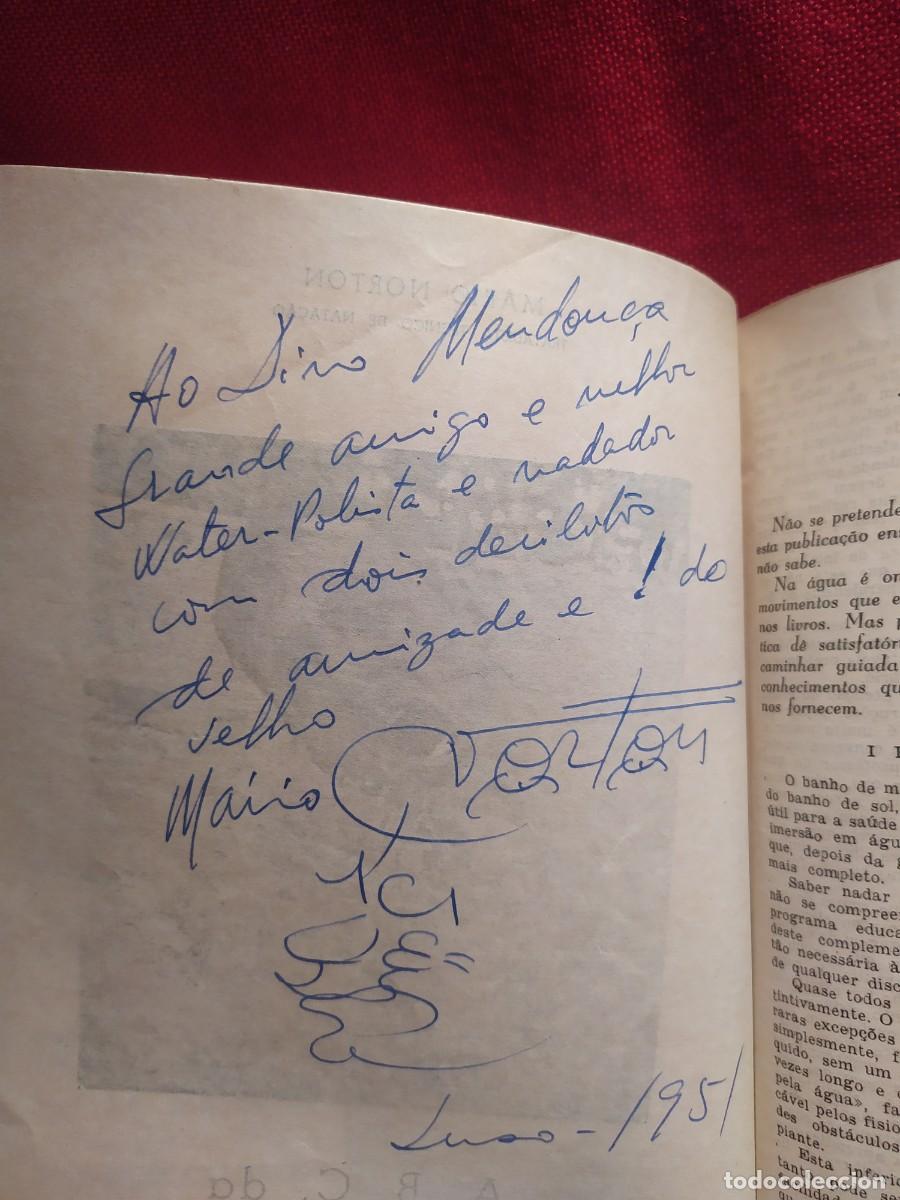 Ao Lino Mendonça
Grande amigo e melhor
Water-Polista e nadador
com dois decilitros
de amizade e ! do
velho
Mário Norton
Luso - 1951
MARIO NORTON
TÉCNICO DE NATAÇÃO
A B C da
Não se pretende
esta publicação en
não sabe.
Na água é on
movimentos que e
nos livros. Mas p
tica dê satisfatór
caminhar guiada
conhecimentos qu
nos fornecem.
I
O banho de m
do banho de sol,
útil para a saúde
imersão em águ
que, depois da g
mais completo.
Saber nadar
não se compree
programa educa
deste compleme
tão necessária à
de qualquer disc
Quase todos
tintivamente. O
raras excepções
simplesmente, f
quido, sem um
vezes longo e
pela água», fa
cável pelos fisio
des obstáculos
piante.
Esta inferio
todocoleccion